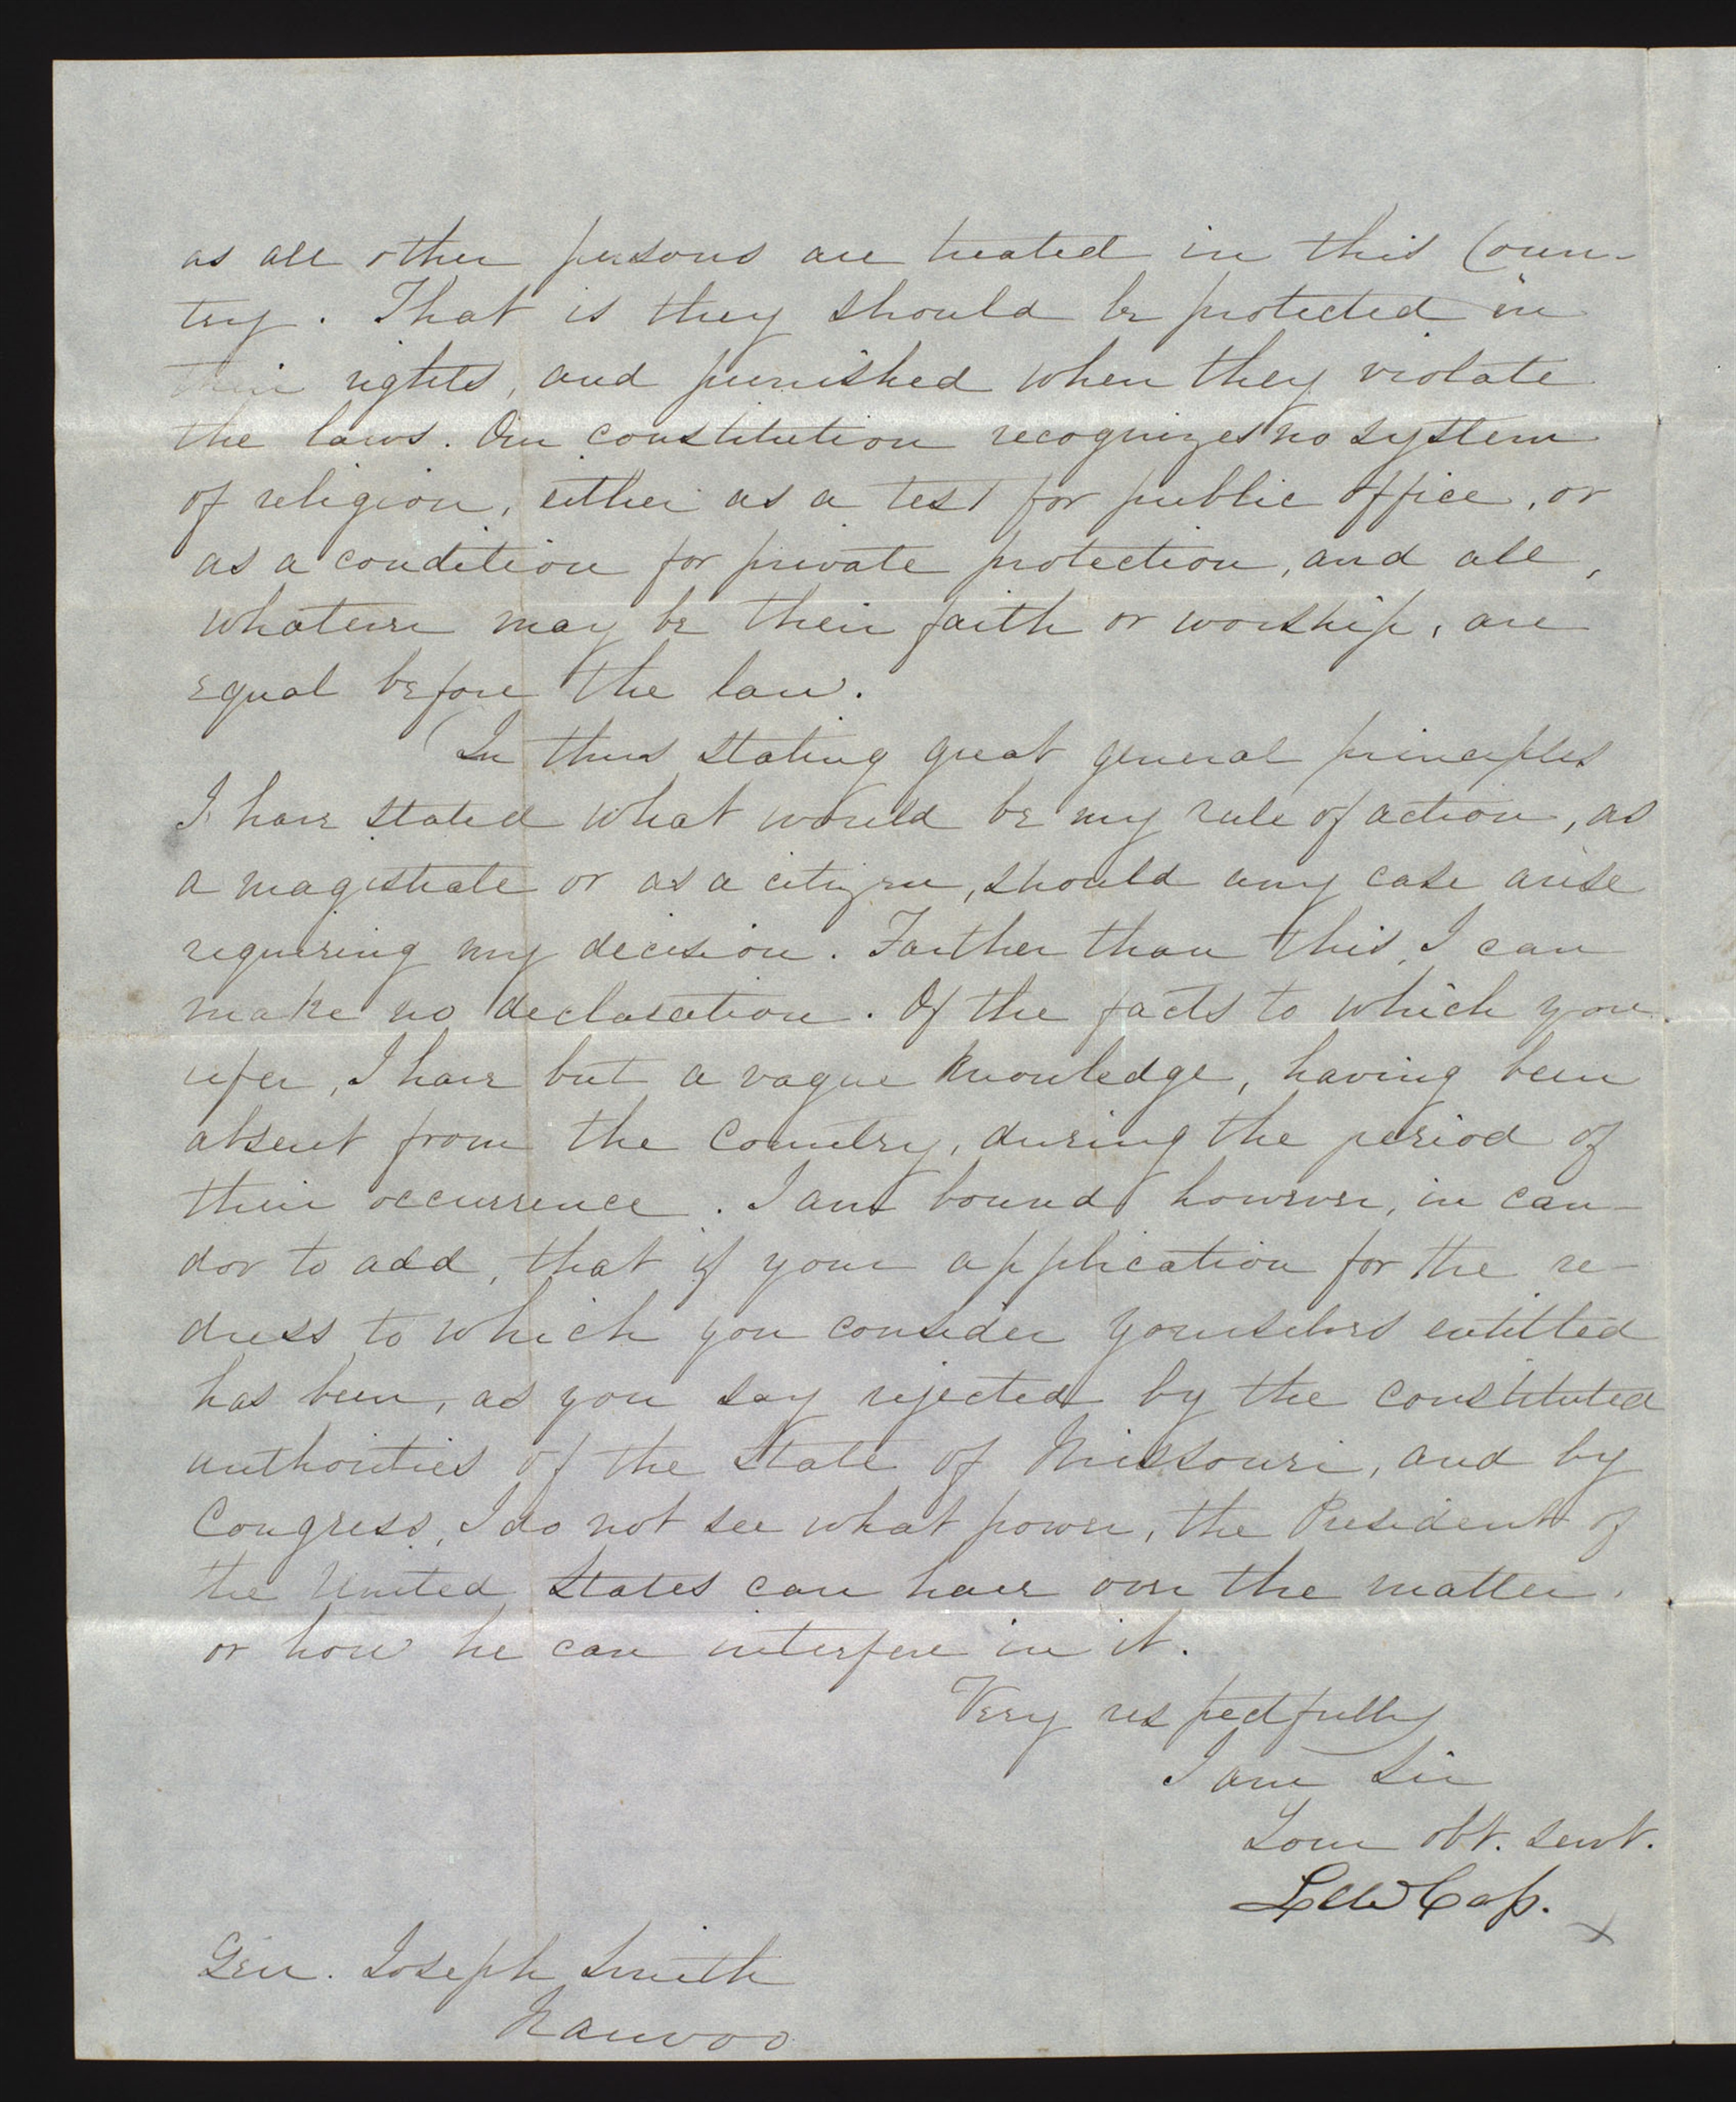 as all other persons are treated in this Coun-
try. That is they should be protected in
their rights, and punished when they violate
the laws. Our constitution recognizes no system
of religion, either as a test for public office, or
as a condition for private protection, and all,
whatever may be their faith or worship, are
equal before the law.
In thus stating great general principles
I have stated what would be my rule of action, as
a magistrate or as a citizen, should any case arise
requiring my decision. Farther than this, I can
make no declaration. Of the facts to which you
refer, I have but a vague knowledge, having been
absent from the Country, during the period of
their occurrence. I am bound however, in can-
dor to add, that if your application for the re-
dress to which you consider yourselves entitled
has been, as you say rejected by the constituted
authorities of the State of Missouri, and by
Congress, I do not see what power, the President of
the United States can have over the matter,
or how he can interfere in it.
Very respectfully
I am Sir
Your obt. servt.
Lew Cass.
Gen. Joseph Smith
Nauvoo